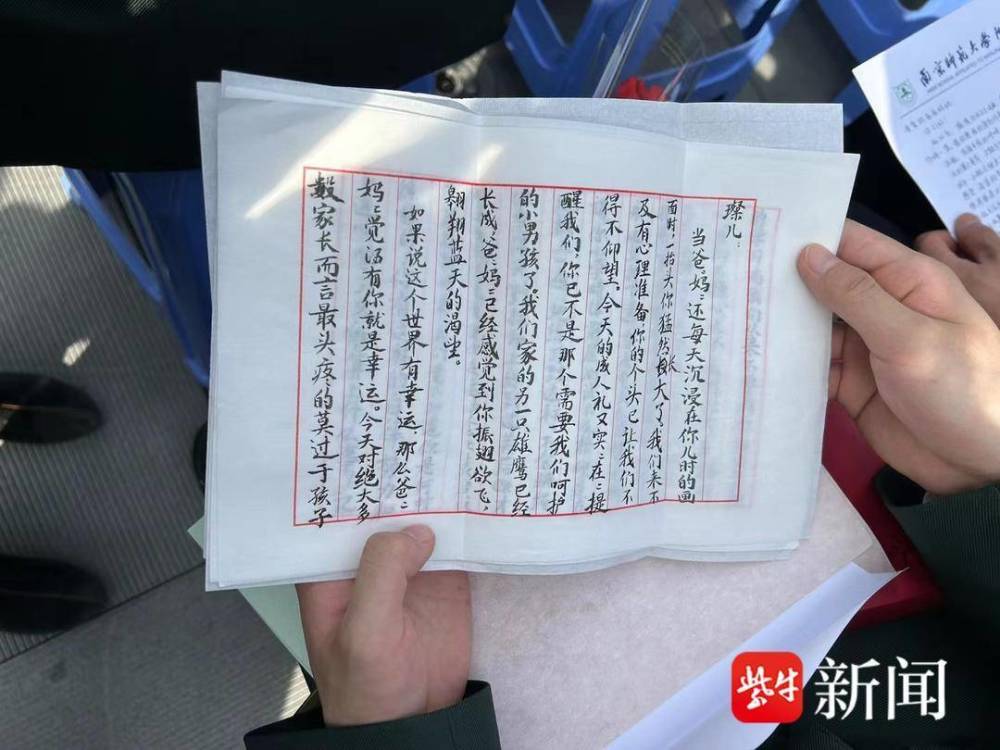 璨儿：
当爸ミ妈ミ还每天沉浸在你儿时的画
面时，一抬头你猛然长大了，我们来不
及有心理准备你的个头已让我们不
得不仰望。今天的成人礼又实ミ在ミ提
醒我们，你已不是那个需要我们呵护
的小男孩了。我们家的另一只雄鹰已经
长成，爸ミ妈ミ已经感觉到你振翅欲飞，
翱翔蓝天的渴望。
如果说这个世界有幸运，那么爸ミ
妈ミ觉得有你就是幸运。今天对绝大多
数家长而言最头疼的莫过于孩子
南京师范大学附
紫牛新闻